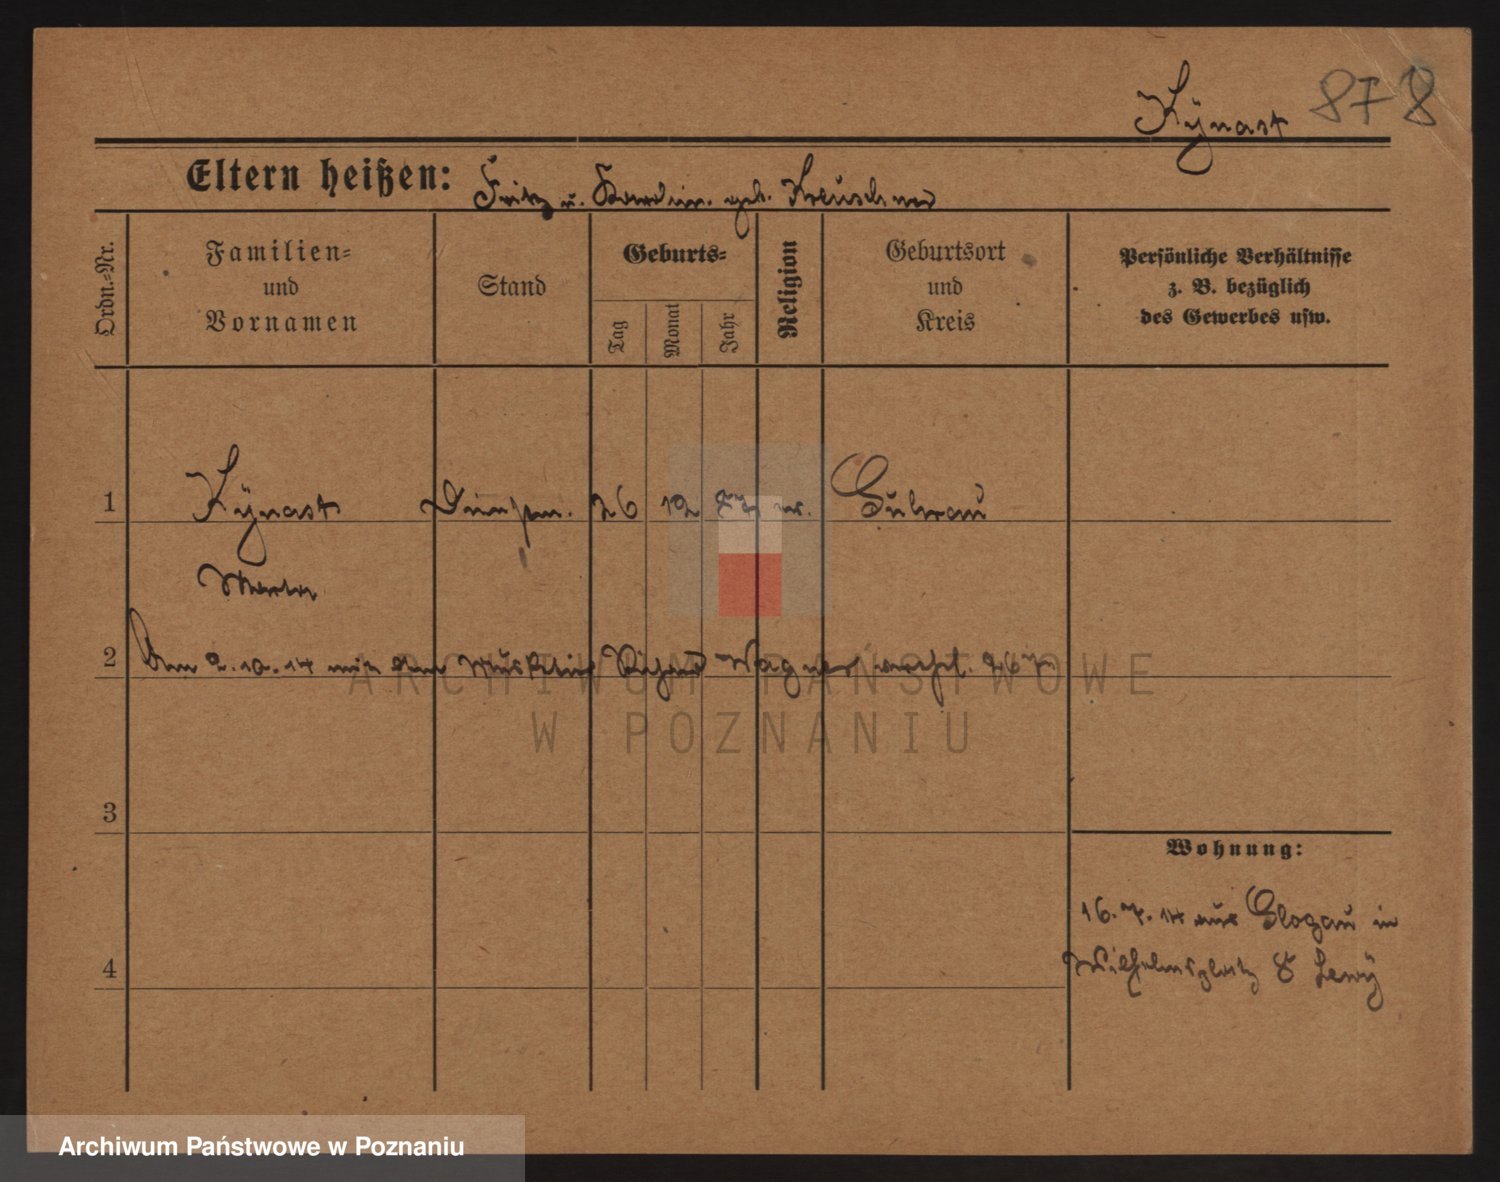 Kÿnast 878
Eltern heißen: Fritz u. geb. Kreuschner
Ordn.-Nr.
Familien- und Vornamen
Stand
Geburts-
Tag
Monat
Jahr
Religion
Geburtsort und Kreis
Persönliche Verhältnisse
z. B. bezüglich
des Gewerbes usw.
1 Kÿnast 26 12 Guhrau
2 2.10.14 mit dem Musketier Wagner
3
Wohnung:
16.7.14 aus Glogau in
Wilhelmsplatz 8 Lewÿ
4
ARCHIWUM PAŃSTWOWE
W POZNANIU
Archiwum Państwowe w Poznaniu